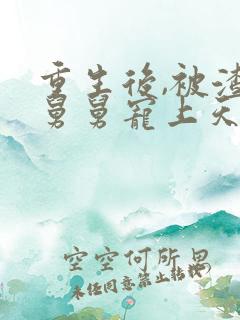 重生后,被渣
舅舅宠上天
空空何所思
未经同意禁止转载